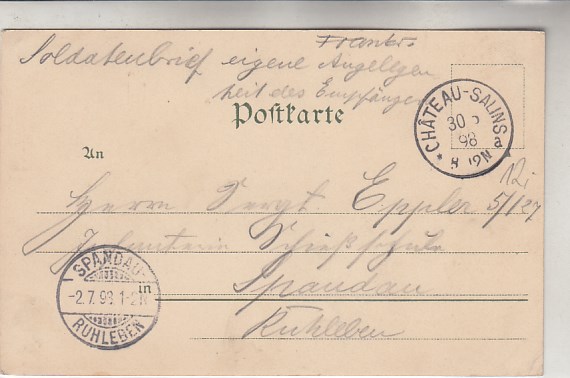 Soldatenbrief eigene Angelegen
heit des Empfängers
Postkarte
CHÂTEAU-SALINS
30
98
a
An
Herrn Sergt. Eppler 5/127
Infanterie Schießschule
in Spandau
Ruhleben
SPANDAU-
-2.7.98 1-2N
RUHLEBEN